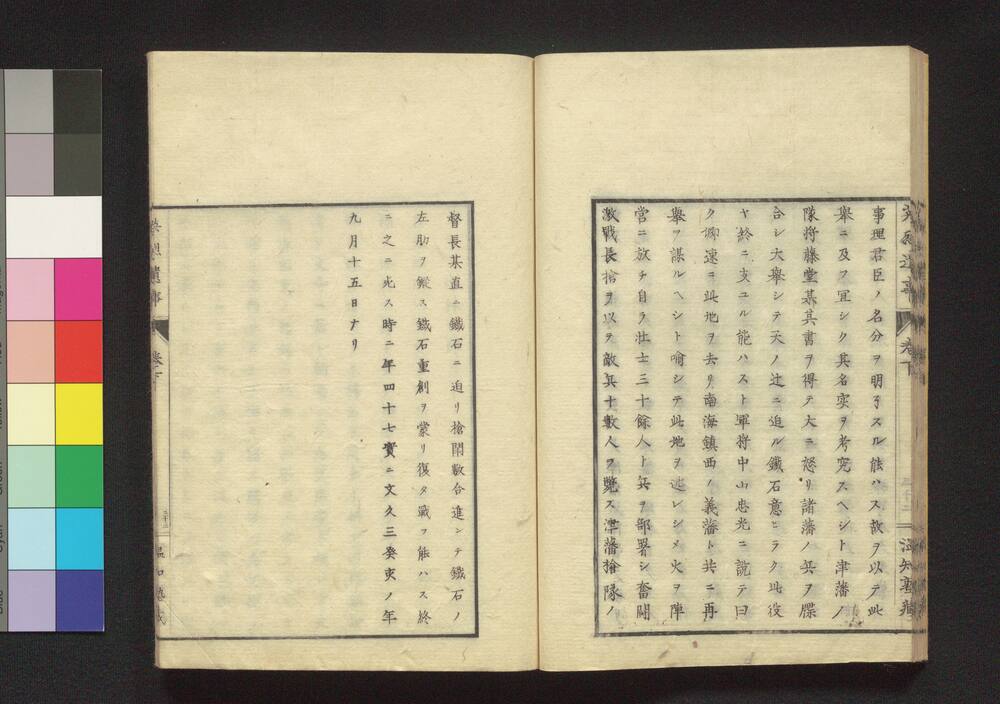 事理君臣ノ名分ヲ明了スル能ハス故ヲ以テ此
擧ニ及フ冝シク其名実ヲ考究スヘシト津藩ノ
隊将藤堂某其書ヲ得テ大ニ怒リ諸藩ノ兵ヲ牒
合シ大擧シテ天ノ辻ニ迫ル鐵石意ヒラク此役
ヤ終ニ支ユル能ハスト軍将中山忠光ニ説テ曰
ク卿速ニ此地ヲ去リ南海鎮西ノ義藩ト共ニ再
擧ヲ謀ルヘシト喻シテ此地ヲ逃レシメ火ヲ陣
営ニ放チ自ラ壮士三十餘人ト兵ヲ部署シ奮鬪
激戰長槍ヲ以テ敵兵十數人ヲ斃ス津藩槍隊ノ
督長某直ニ鐵石ニ迫リ槍鬪數合進ンテ鐵石ノ
左肋ヲ縱ス鐵石重創ヲ蒙リ復タ戰フ能ハス終
ニ之ニ死ス時ニ年四十七實ニ文久三癸亥ノ年
九月十五日ナリ
卷下